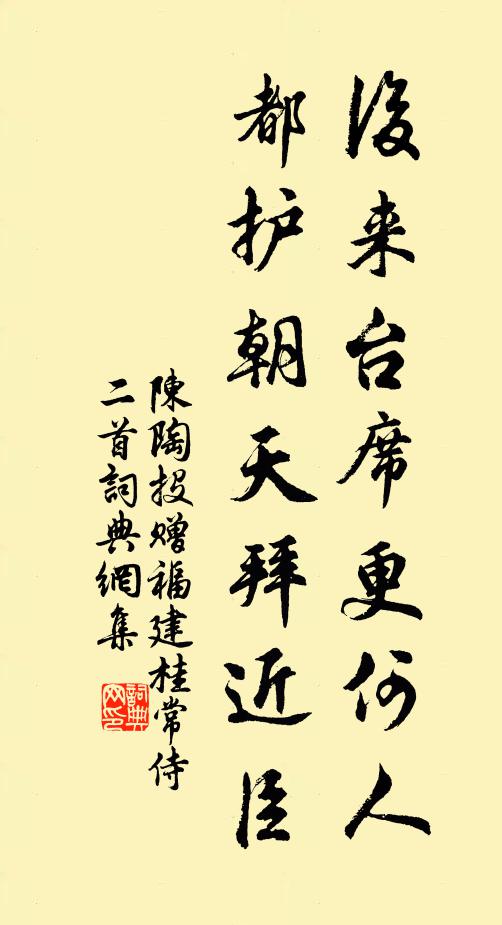 後来台席更何人
都护朝天拜近臣
陳陶投贈福建桂常侍
二首詞典網集
詞典
网印